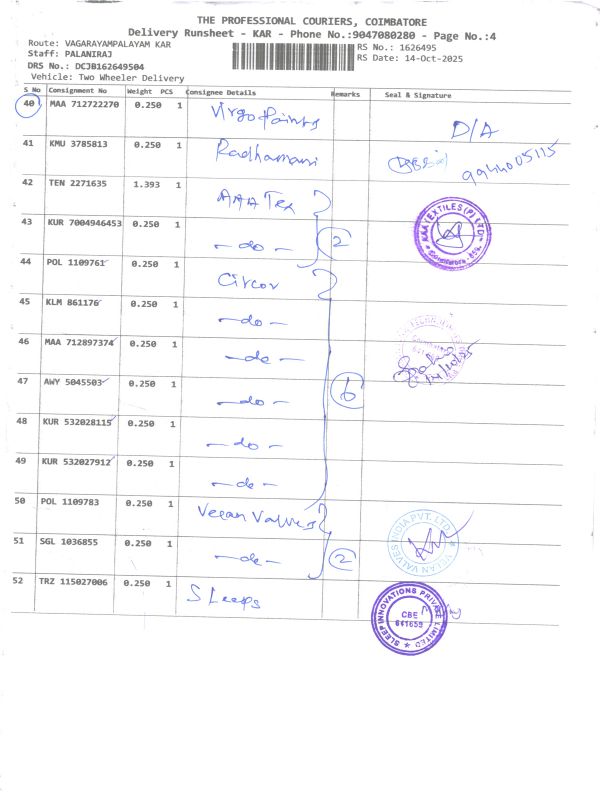 THE PROFESSIONAL COURIERS, COIMBATORE
Delivery Runsheet - KAR - Phone No.:9047080280 - Page No.:4
Route: VAGARAYAMPALAYAM KAR
Staff: PALANIRAJ
DRS No.: DCJB162649504
Vehicle: Two Wheeler Delivery
RS No.: 1626495
RS Date: 14-Oct-2025
S No Consignment No Weight PCS Consignee Details Remarks Seal & Signature
40 MAA 712722270 0.250 1 Virgo Paints D/A
41 KMU 3785813 0.250 1 Radhamani 9944005115
42 TEN 2271635 1.393 1 AAA Tex
43 KUR 7004946453 0.250 1 -do- 2
44 POL 1109761 0.250 1 Circor
45 KLM 861176 0.250 1 -do-
46 MAA 712897374 0.250 1 -do- 14/10/25
47 AWY 5045503 0.250 1 -do- 6
48 KUR 532028115 0.250 1 -do-
49 KUR 532027912 0.250 1 -do-
50 POL 1109783 0.250 1 Veean Valves
51 SGL 1036855 0.250 1 -do- 2
VEEAN VALVES INDIA PVT. LTD.
52 TRZ 115027006 0.250 1 Sleeps
SLEEP INNOVATIONS PRIVATE LIMITED
CBE
641659